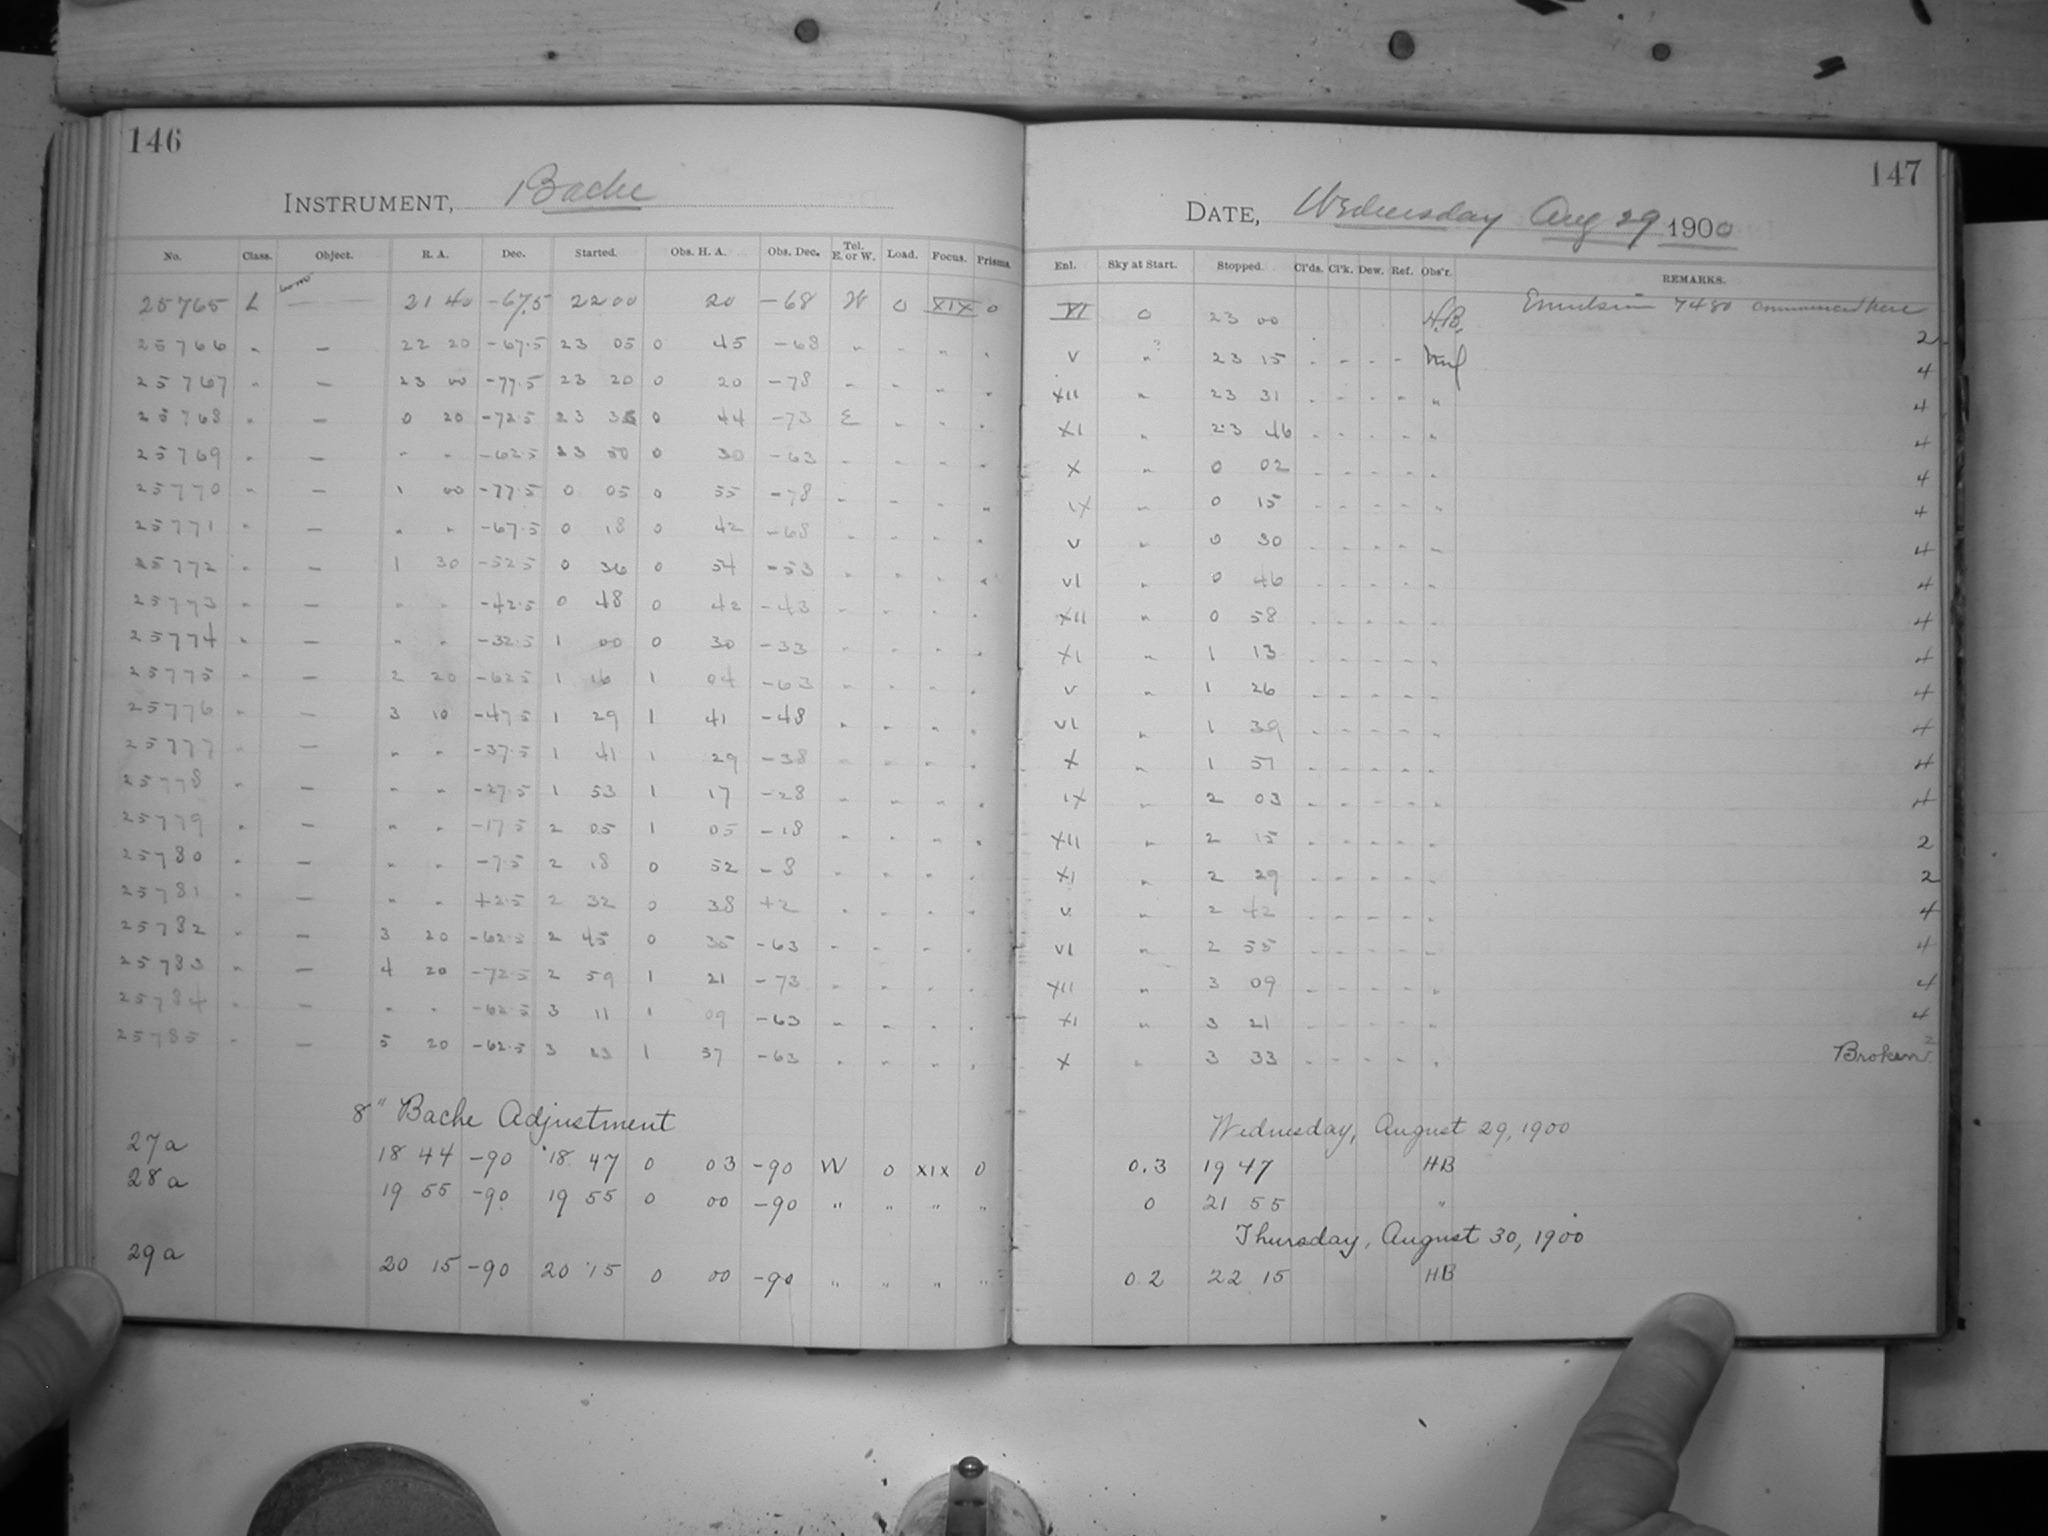 146
INSTRUMENT, Bache
No. Class. Object. R. A. Dec. Started. Obs. H. A. Obs. Dec. Tel. E. or W. Load. Focus. Prisms.
25765 L — 21 40 -67.5 22 00 20 -68 W 0 XIX 0
25766 " — 22 20 -67.5 23 05 0 45 -68 " " " "
25767 " — 23 00 -77.5 23 20 0 20 -78 " " " "
25768 " — 0 20 -72.5 23 36 0 44 -73 E " " "
25769 " — " " -62.5 23 50 0 30 -63 " " " "
25770 " — 1 00 -77.5 0 05 0 55 -78 " " " "
25771 " — " " -67.5 0 18 0 42 -68 " " " "
25772 " — 1 30 -52.5 0 36 0 54 -53 " " " "
25773 " — " " -42.5 0 48 0 42 -43 " " " "
25774 " — " " -32.5 1 00 0 30 -33 " " " "
25775 " — 2 20 -62.5 1 16 1 04 -63 " " " "
25776 " — 3 10 -47.5 1 29 1 41 -48 " " " "
25777 " — " " -37.5 1 41 1 29 -38 " " " "
25778 " — " " -27.5 1 53 1 17 -28 " " " "
25779 " — " " -17.5 2 05 1 05 -18 " " " "
25780 " — " " -7.5 2 18 0 52 -8 " " " "
25781 " — " " +2.5 2 32 0 38 +2 " " " "
25782 " — 3 20 -62.5 2 45 0 35 -63 " " " "
25783 " — 4 20 -72.5 2 59 1 21 -73 " " " "
25784 " — " " -62.5 3 11 1 09 -63 " " " "
25785 " — 5 20 -62.5 3 23 1 57 -63 " " " "
8" Bache Adjustment
27a 18 44 -90 18 47 0 03 -90 W 0 XIX 0
28a 19 55 -90 19 55 0 00 -90 " " " "
29a 20 15 -90 20 15 0 00 -90 " " " "
147
DATE, Wednesday Aug 29 1900
Enl. Sky at Start. Stopped. Cl'ds. Cl'k. Dew. Ref. Obs'r. REMARKS.
VI 0 23 00 H.B. Emulsion 7480 commenced here 2
V " ? 23 15 - - - - 4
XII " 23 31 - - - - " 4
XI " 23 46 - - - - " 4
X " 0 02 - - - - " 4
IX " 0 15 - - - - " 4
V " 0 30 - - - - " 4
VI " 0 46 - - - - " 4
XII " 0 58 - - - - " 4
XI " 1 13 - - - - " 4
V " 1 26 - - - - " 4
VI " 1 39 - - - - " 4
X " 1 51 - - - - " 4
IX " 2 03 - - - - " 4
XII " 2 15 - - - - " 2
XI " 2 29 - - - - " 2
V " 2 42 - - - - " 4
VI " 2 55 - - - - " 4
XII " 3 09 - - - - " 4
XI " 3 21 - - - - " 4
X " 3 33 - - - - " Broken 2
Wednesday, August 29, 1900
0.3 19 47 HB
0 21 55 "
Thursday, August 30, 1900
0.2 22 15 HB